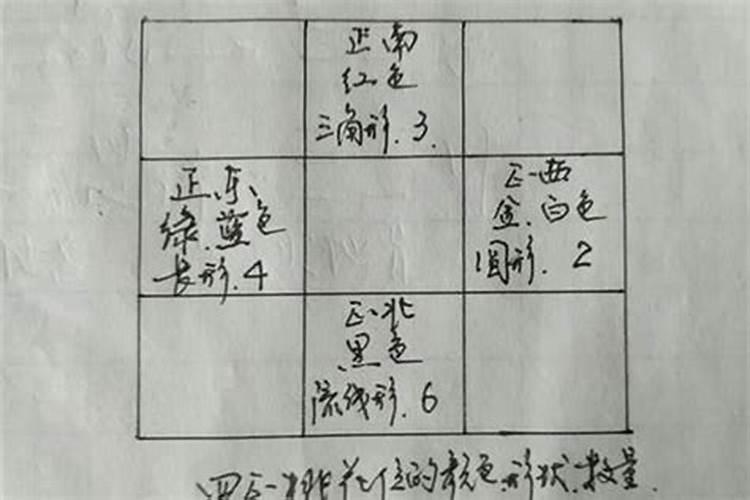 正南
红色
三角形.3.
正东
绿.蓝色
长形.4
正西
金.白色
圆形.2
正北
黑色
流线形.6
四正桃花位的颜色.形状.数量.